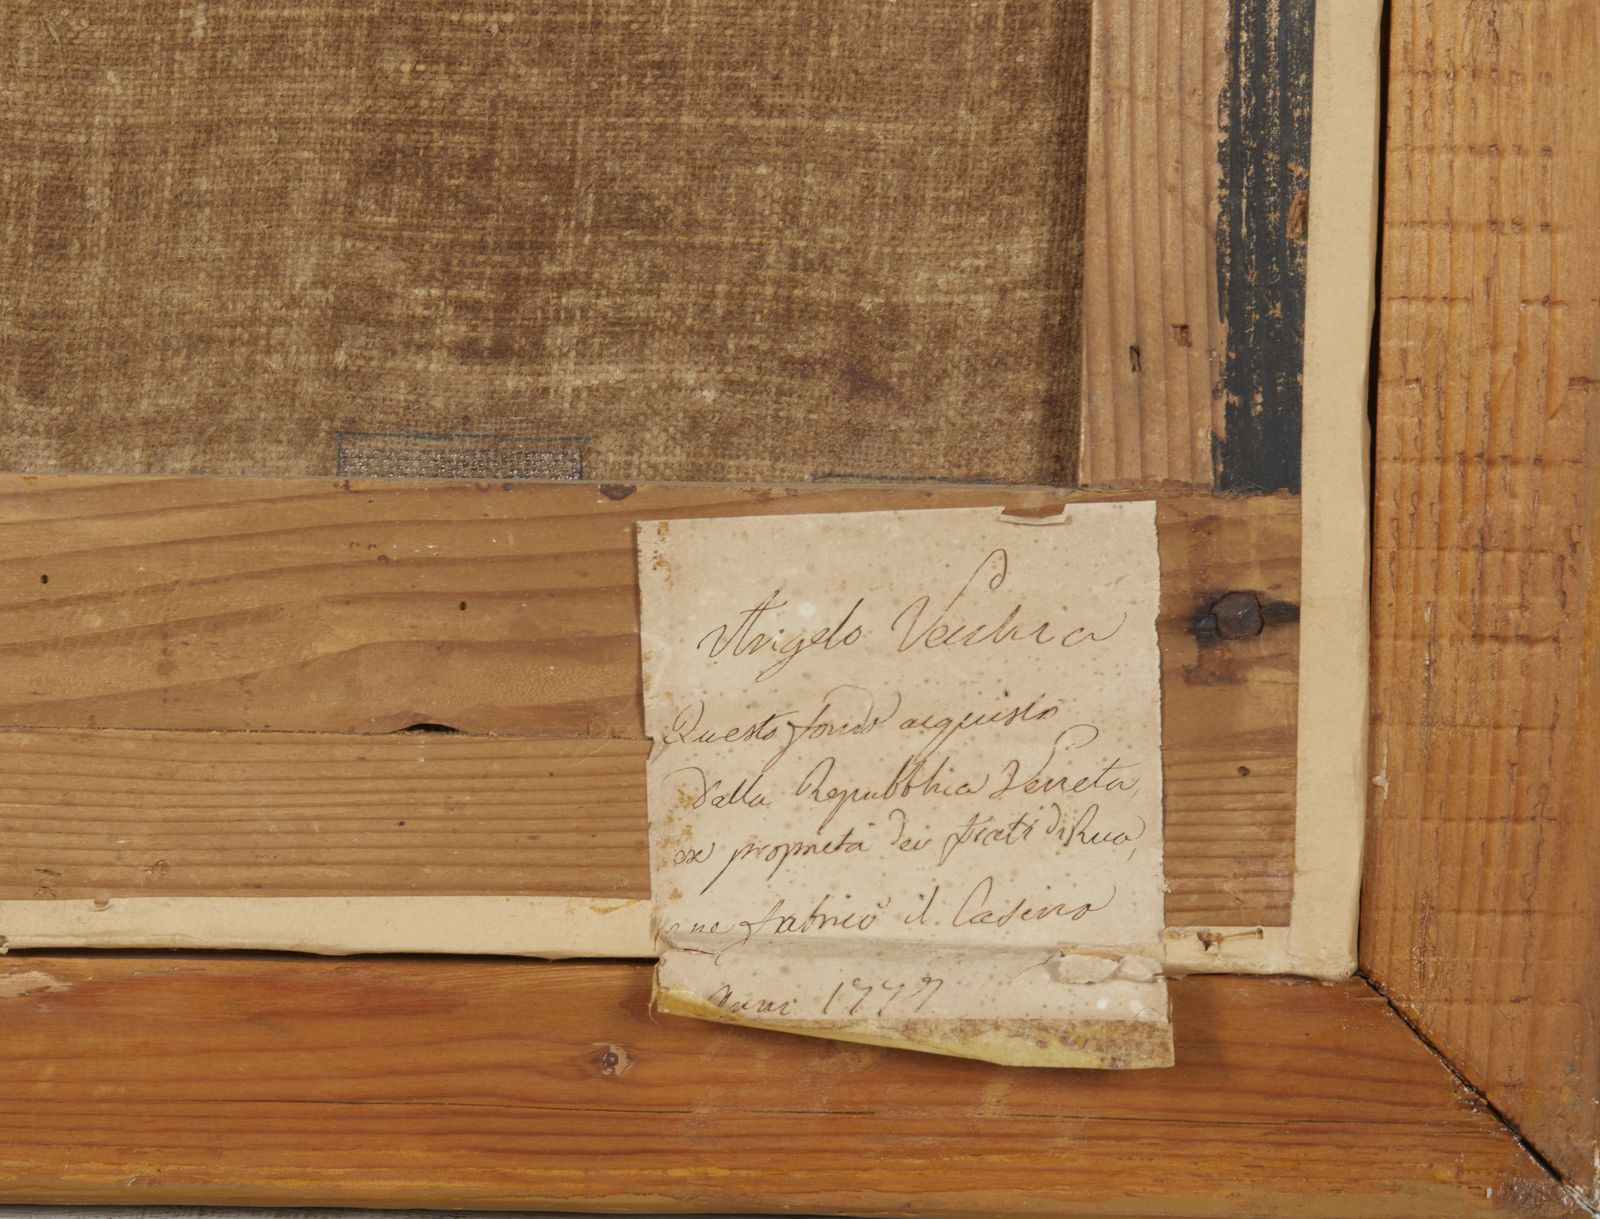 Angelo Vecchia
Questo fondo acquistò
dalla Repubblica Veneta,
ex proprietà dei Frati di Rua,
e ne fabricò il Casino
Anni 1777